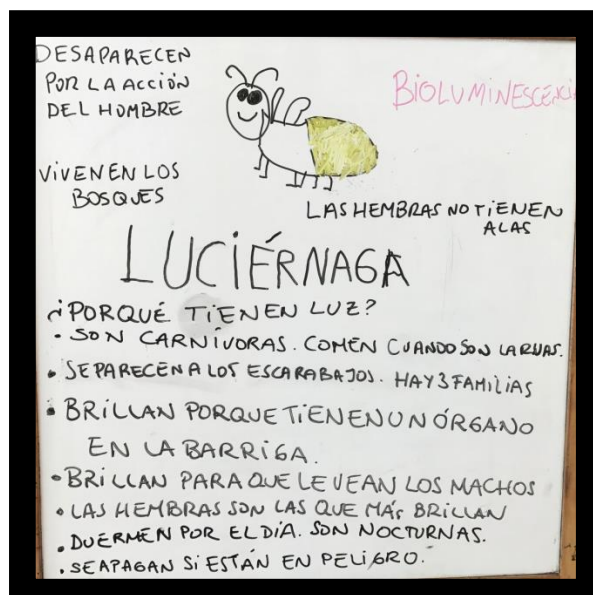 DESAPARECEN
POR LA ACCIÓN
DEL HOMBRE
BIOLUMINESCENCIA
VIVEN EN LOS
BOSQUES
LAS HEMBRAS NO TIENEN
ALAS
LUCIÉRNAGA
¿PORQUÉ TIENEN LUZ?
• SON CARNÍVORAS. COMEN CUANDO SON LARVAS.
• SE PARECEN A LOS ESCARABAJOS. HAY 3 FAMILIAS
• BRILLAN PORQUE TIENEN UN ÓRGANO
EN LA BARRIGA.
• BRILLAN PARA QUE LE VEAN LOS MACHOS
• LAS HEMBRAS SON LAS QUE MÁS BRILLAN
• DUERMEN POR EL DÍA. SON NOCTURNAS.
• SE APAGAN SI ESTÁN EN PELIGRO.